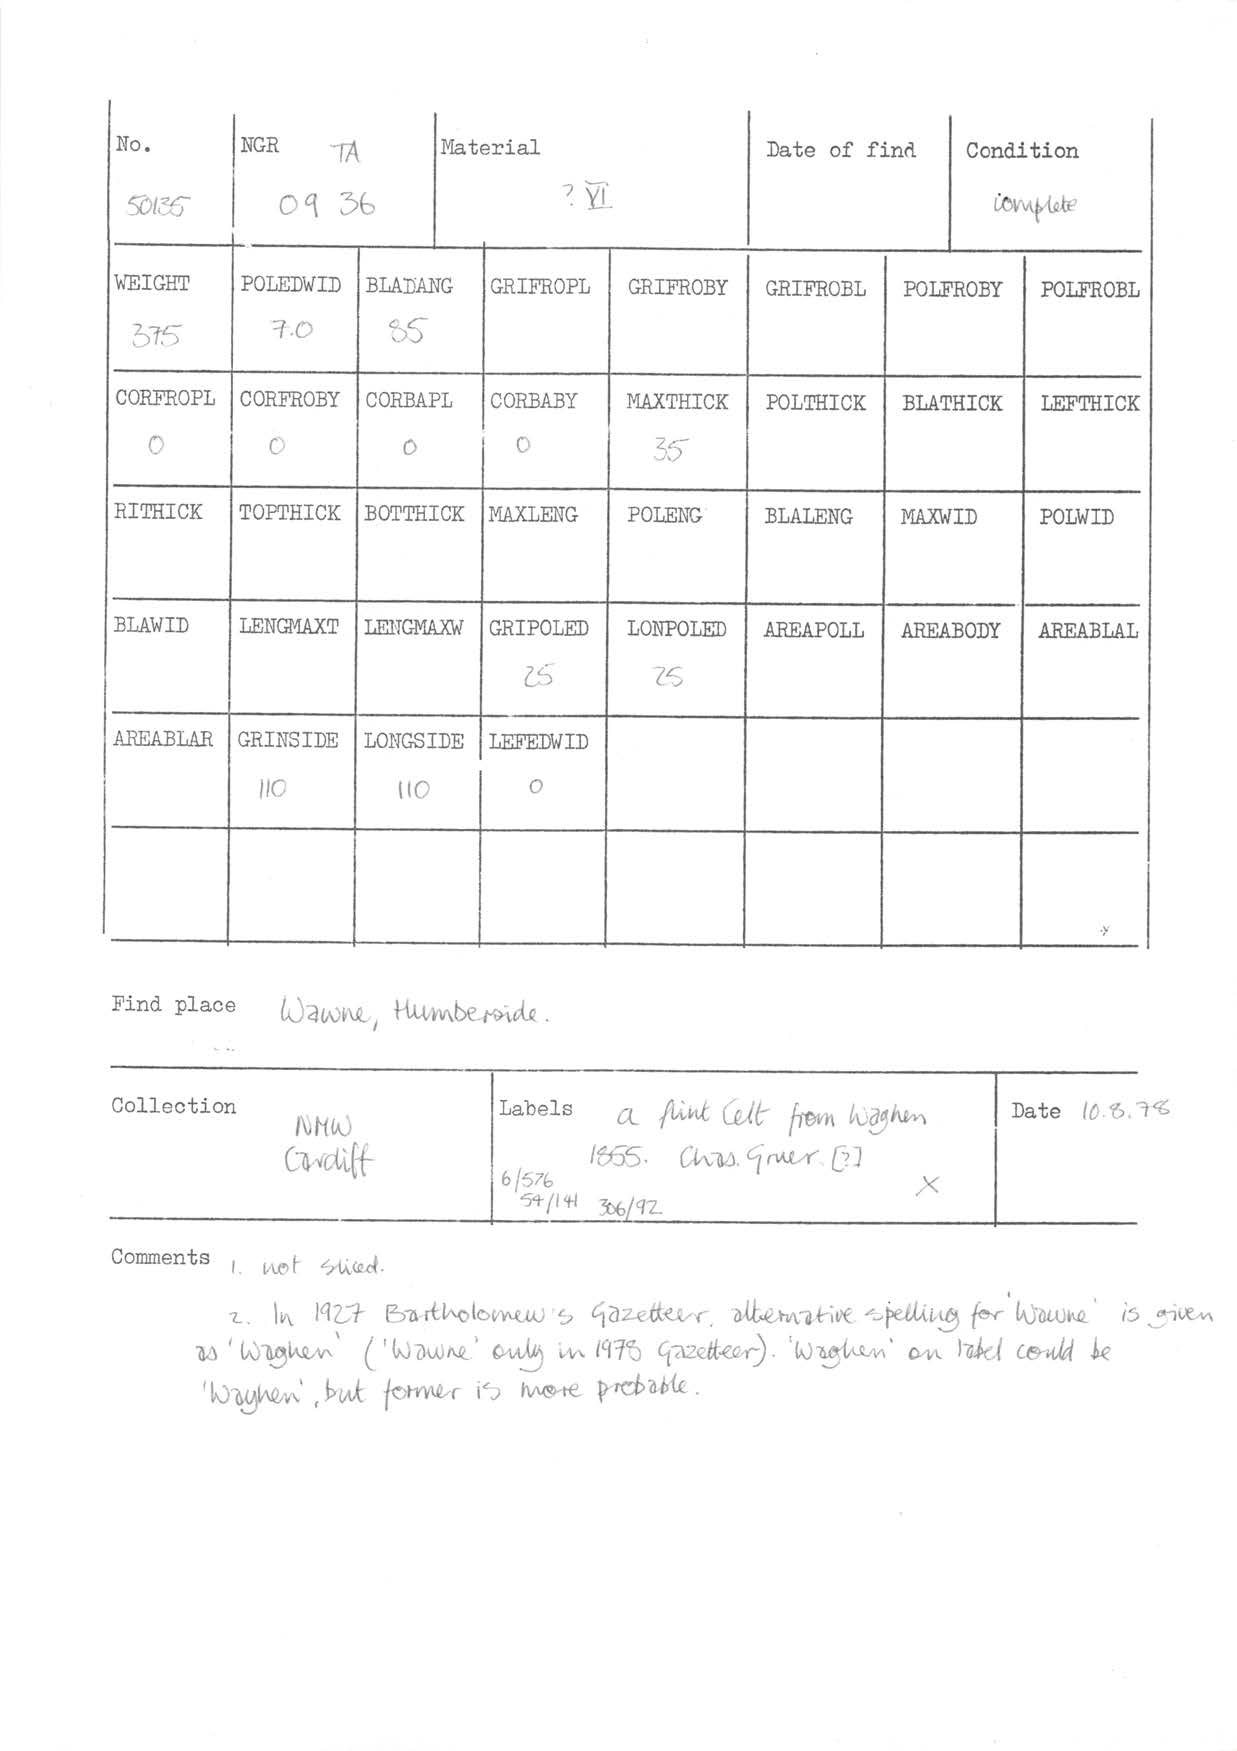 No. NGR TA Material Date of find Condition
50135 09 36 ? VI complete
WEIGHT POLEDWID BLADANG GRIFROPL GRIFROBY GRIFROBL POLFROBY POLFROBL
375 7.0 85
CORFROPL CORFROBY CORBAPL CORBABY MAXTHICK POLTHICK BLATHICK LEFTHICK
0 0 0 0 35
RITHICK TOPTHICK BOTTHICK MAXLENG POLENG BLALENG MAXWID POLWID
BLAWID LENGMAXT LENGMAXW GRIPOLED LONPOLED AREAPOLL AREABODY AREABLAL
25 25
AREABLAR GRINSIDE LONGSIDE LEFEDWID
110 110 0
Find place Wawne, Humberside.
Collection NMW Cardiff
Labels a flint Celt from Waghen
1855. Chas. [?]
6/576
54/141 306/92 X
Date 10.8.78
Comments 1. not sliced.
2. In 1927 Bartholomew's Gazetteer, alternative spelling for 'Wawne' is given
as 'Waghen' ('Wawne' only in 1978 Gazetteer). 'Waghen' on label could be
'Wayhen', but former is more probable.